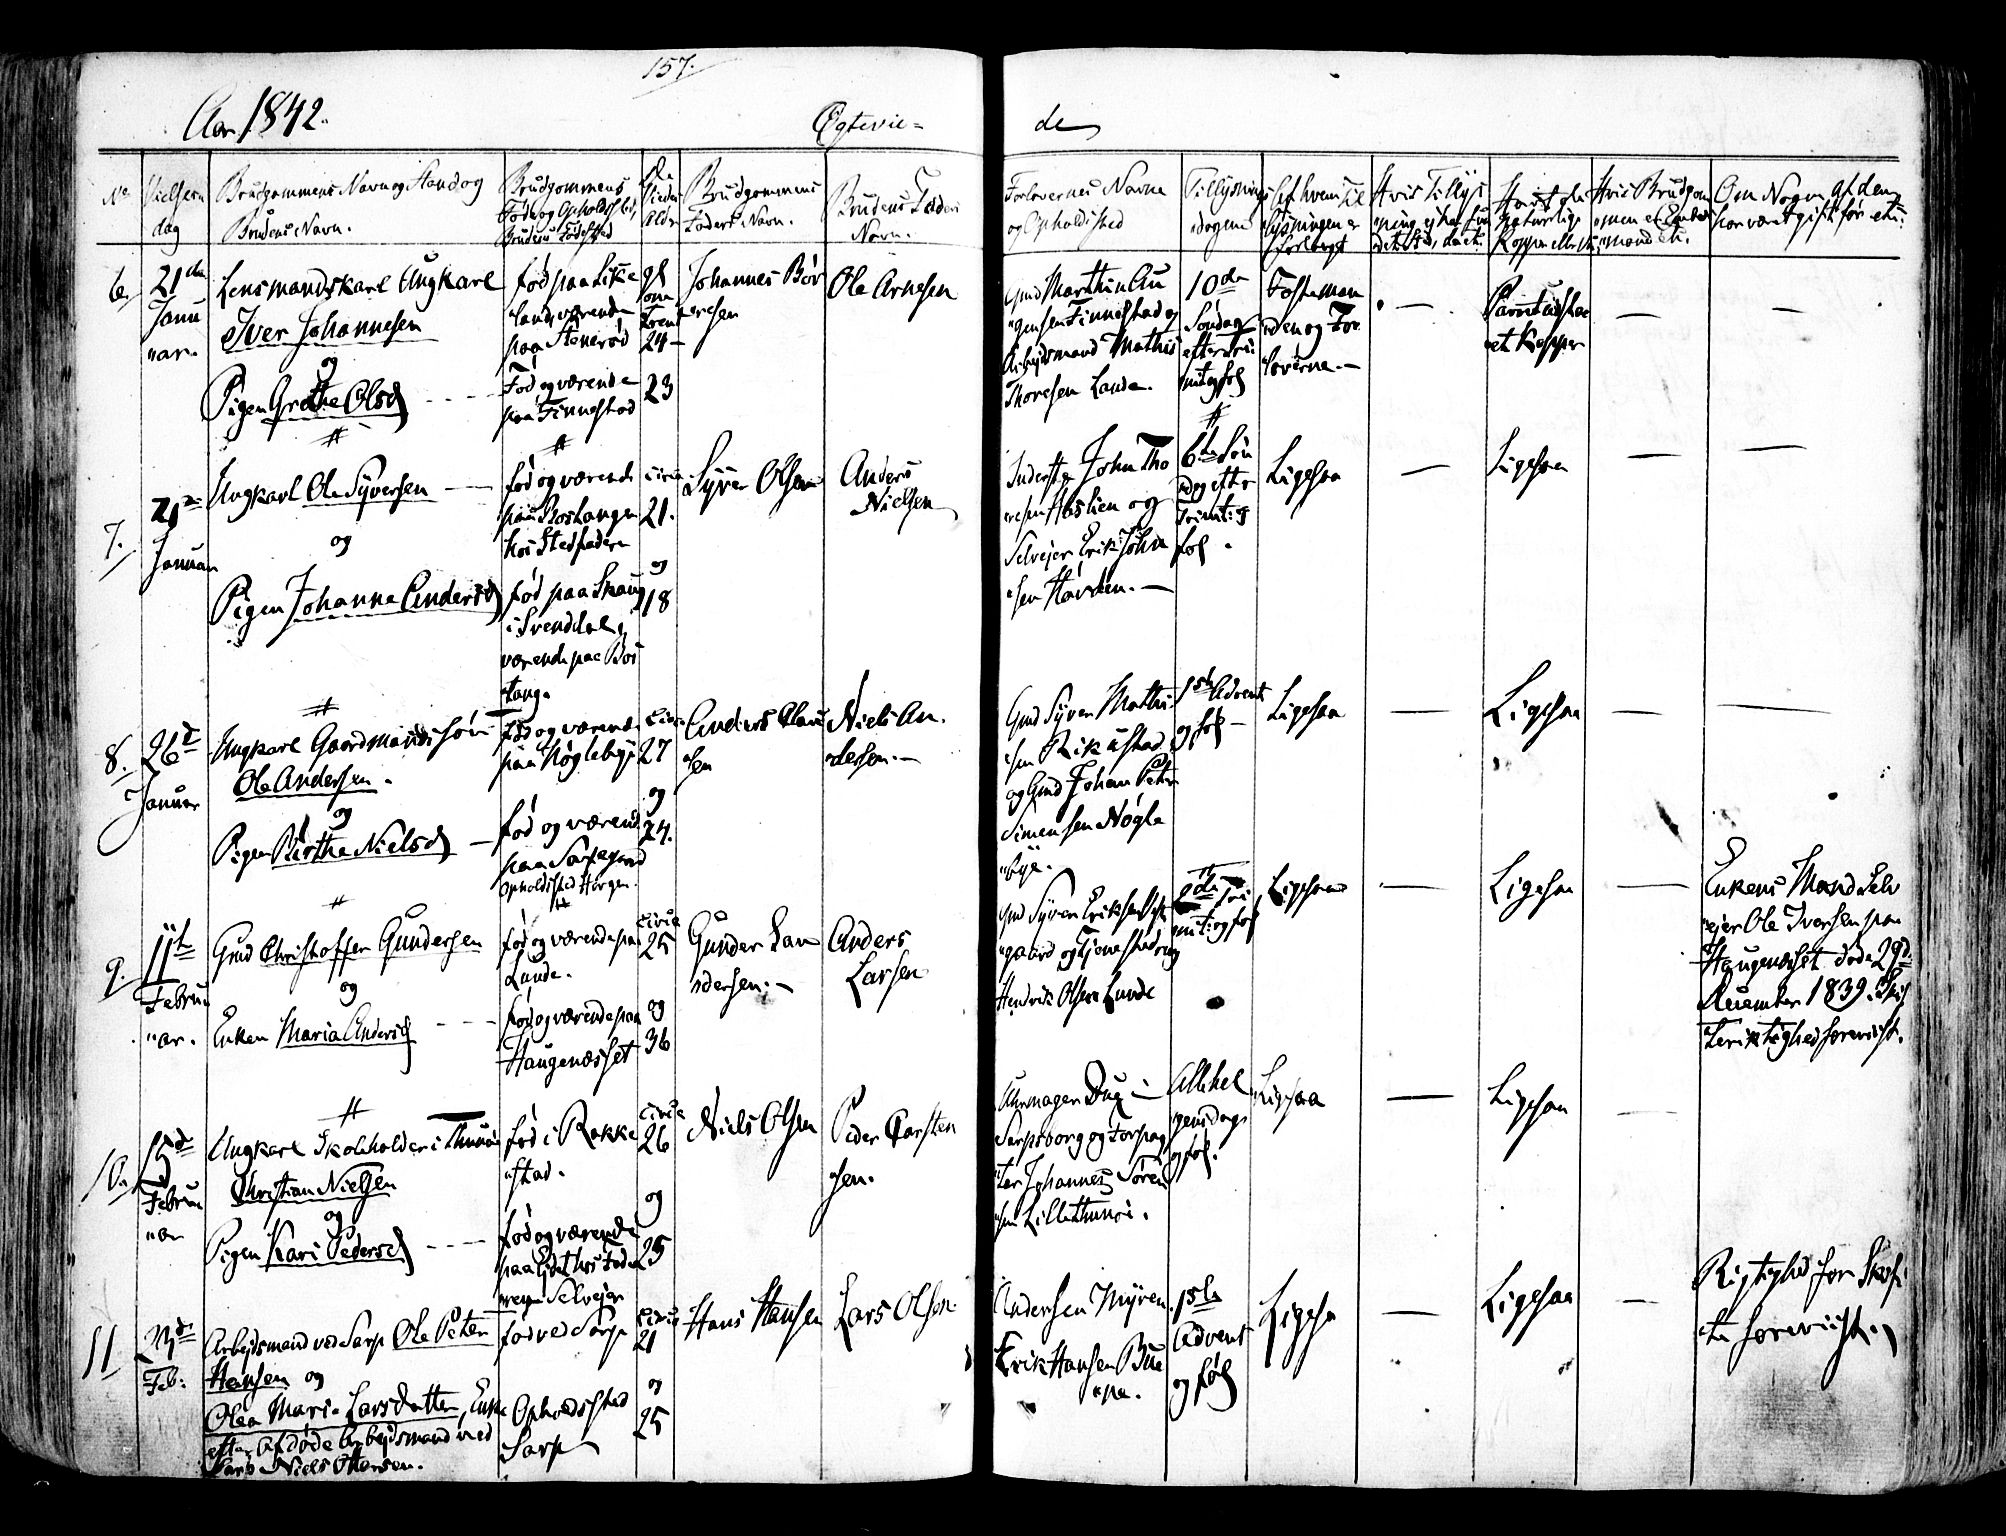 157.
Aar 1842.
Ægtevie=
de
No
Vielsens
dag
Brudgommens Navn og Stand og
Brudens Navn.
Brudgommens
Føde og Opholdssted,
Brudens Fødested
Alder
Brudgommens
Faders Navn.
Brudens Faders
Navn.
Forlovernes Navne
og Opholdssted
Tillysnings
dagene
Af hvem Til
lysningen er
forlangt
Hvis Tillys
ning ej har fun
det Sted, da etc.
naturlige
Kopper eller
Hvis Brudgom
men er Enke
mand etc.
Om Nogen af dem
har været gift før etc:
6
21de
Janu
ar.
Lensmandskarl Ungkarl
Iver Johannesen
og
Pigen Grethe Olsd
fød paa Lille
Lande værende
paa Stenerød
Fød og værende
paa Finnestad
24
23
Johannes Bør
resen
Ole Arnesen
Gmd Marthin Au
gensen Finnestad og
Arbejdsmand Mathis
Thoresen Lande.
10de
Søndag
efter Tri
nit og føl
Fostemon
den og For
loverne.
et Kopper
7.
21de
Januar
Ungkarl Ole Syversen
og
Pigen Johanne Andersd
fød og værende
paa Bostangen
hos Stedfaderen
fød paa Skaug
i Svenddal,
værende paa Bos
tang.
circa
21.
og
18
Syver Olsen
Anders
Nielsen
Inderste John Tho
resen Aslien og
Selvejer Erik John
sen Hovden.
6te Søn
dag efter
Trinit: og
føl.
Ligesaa
Ligesaa
8.
26de
Januar
Ungkarl Gaardmandssøn
Ole Andersen.
og
Pigen Berthe Nielsd
fød og værende
paa Nøglebye
fød og værend
paa Torpegaard
Opholdssted Horgen.
circa
27
og
24.
Anders Claus
sen
Niels An
dersen.
Gmd Syver Mathi
sen Rikustad
og Gmd Johan Peter
Simensen Nøgle
bye.
1ste Advent
og føl
Ligesaa
Ligesaa
9.
11te
Februar
ar.
Gmd Christoffer Gundersen
og
Enken Maria Andersd
fød og værende paa
Lunde.
fød og værende paa
Haugenæsset
circa
25
og
36
Gunder Lau
ridsen.
Anders
Larsen
Gmd Syver Eriksen
gaard og Tjenestedreng
Hendrik Olsen Lunde
2de Tri
nit: og føl
Ligesaa
Ligesaa
Enkens Mand Selv
ejer Ole Iversen paa
Haugenæsset døde 29de
December 1839. Skif
terigtighed foreviist.
10.
15de
Februar
ar
Ungkarl Skoleholder i Thunøe
Christian Nielsen
og
Pigen Kari Pedersd
fød i Rakke
stad.
fød og værende
paa Ejdet hos Fade
ren Selvejer
circa
26
og
25
Niels Olsen
Peder Carsten
sen.
Uhrmager Dug i
Sarpsborg og Forpag
ter Johannes Søren
sen Lillethunøi.
Allehel
gensdag
og føl.
Ligesaa
Ligesaa
11
23de
Feb:
Arbejdsmand ved Sarp Ole Peter
Hansen og
Olea Maria Larsdatter, Enke
efter afdøde Arbejdsmand ved
Sarp Niels Ottersen.
fød ved Sarp
Opholdssted
Sarp
circa
21
og
25
Hans Hansen
Lars Olsen.
Andersen Myren.
Erik Hansen Bue
1ste
Advent
og føl
Ligesaa
Ligesaa
Rigtighed for Skif
te foreviist.